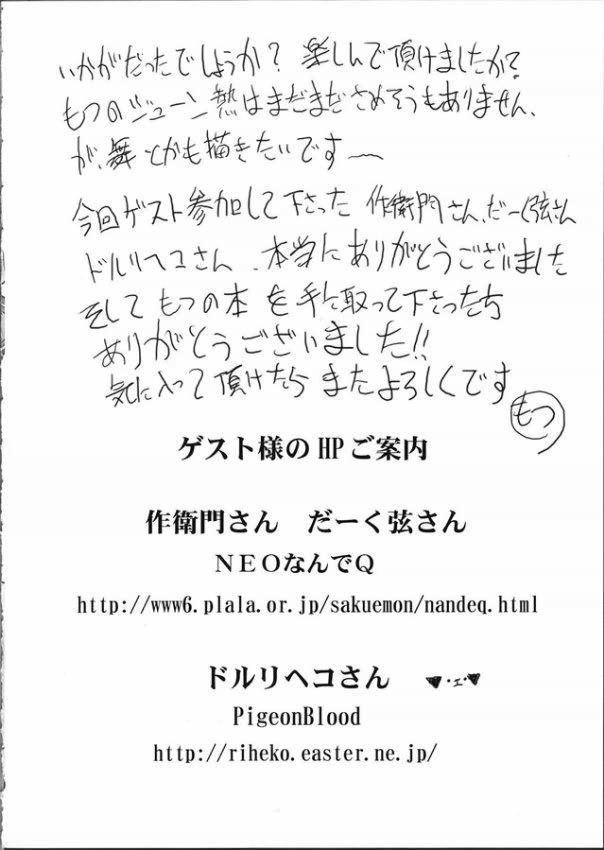 いかがだったでしょうか？ 楽しんで頂けましたか？
もつのジューン熱はまだまださめそうもありません、
が、舞とかも描きたいです〜
今回ゲスト参加して下さった 作衛門さん、だーく弦さん
ドルリヘコさん、本当にありがとうございました
そして もつの本 を手に取って下さったち
ありがとうございました!!
気に入って頂けたら またよろしくです
もつ
ゲスト様のHPご案内
作衛門さん だーく弦さん
NEOなんでQ
http://www6.plala.or.jp/sakuemon/nandeq.html
ドルリヘコさん ▼・ェ・▼
PigeonBlood
http://riheko.easter.ne.jp/